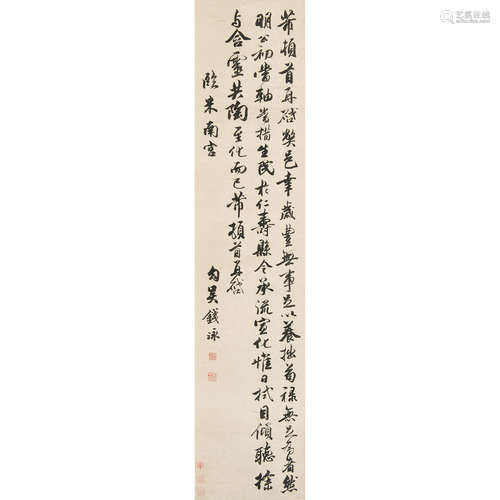 芾頓首再啟獘邑幸歲豐無事足以養拙苟祿無足為者然
明公初當軸當措生民於仁壽縣令承流宣化惟日拭目傾聽徐
与含靈共陶至化而已芾頓首再啟
臨米南宮
勾吳錢泳